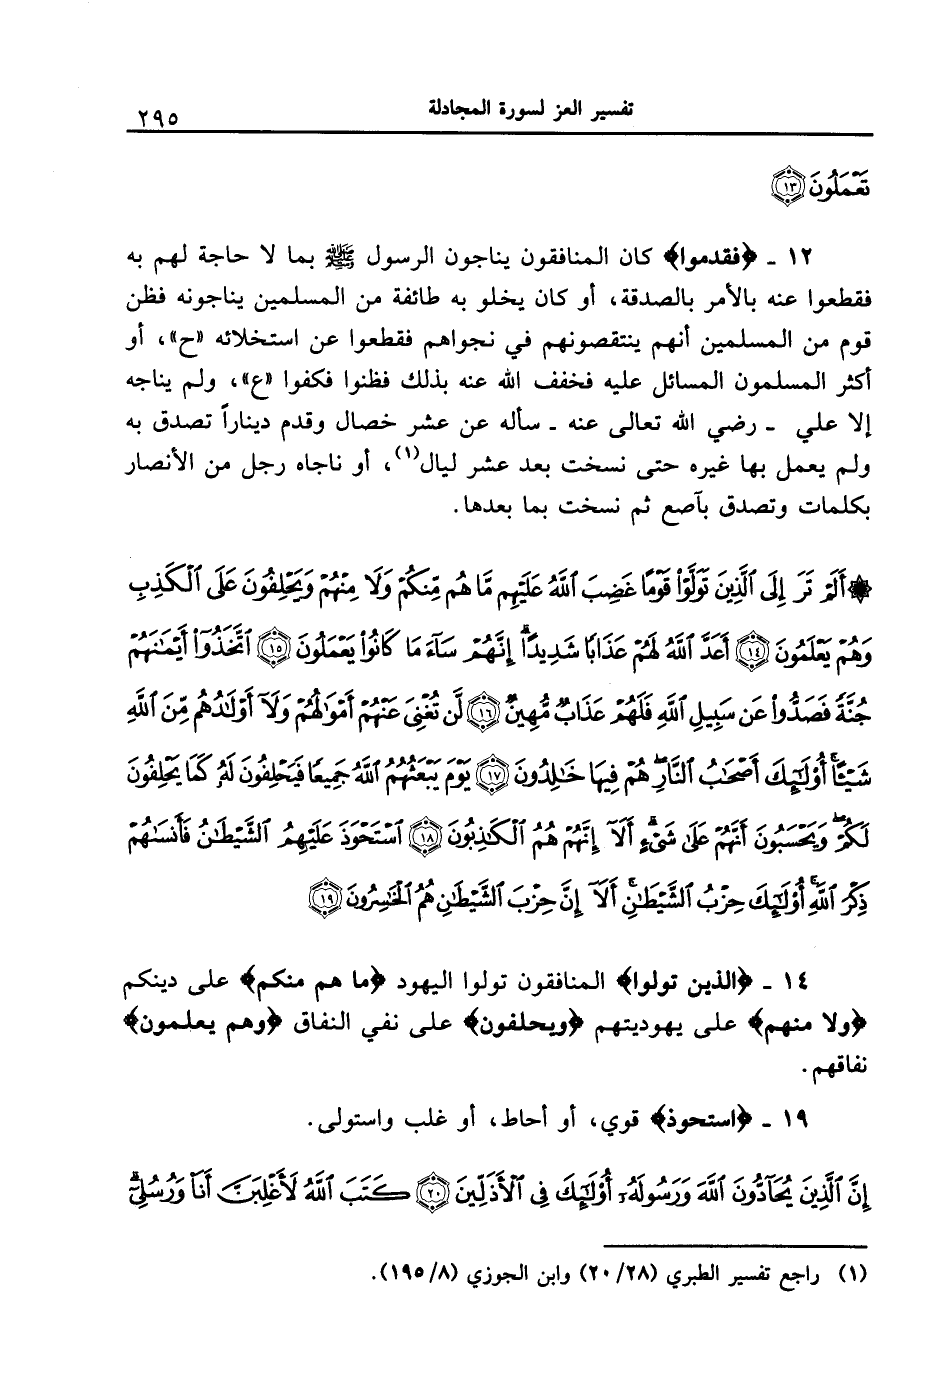 تفسير العز لسورة المجادلة ٢٩٥
تَعْمَلُونَ ﴿١٣﴾
١٢ ـ ﴿فقدموا﴾ كان المنافقون يناجون الرسول ﷺ بما لا حاجة لهم به
فقطعوا عنه بالأمر بالصدقة، أو كان يخلو به طائفة من المسلمين يناجونه فظن
قوم من المسلمين أنهم ينتقصونهم في نجواهم فقطعوا عن استخلائه «ح»، أو
أكثر المسلمون المسائل عليه فخفف الله عنه بذلك فظنوا فكفوا «ع»، ولم يناجه
إلا علي ـ رضي الله تعالى عنه ـ سأله عن عشر خصال وقدم ديناراً تصدق به
ولم يعمل بها غيره حتى نسخت بعد عشر ليال(١)، أو ناجاه رجل من الأنصار
بكلمات وتصدق بآصع ثم نسخت بما بعدها.
۞ أَلَمْ تَرَ إِلَى ٱلَّذِينَ تَوَلَّوْا۟ قَوْمًا غَضِبَ ٱللَّهُ عَلَيْهِم مَّا هُم مِّنكُمْ وَلَا مِنْهُمْ وَيَحْلِفُونَ عَلَى ٱلْكَذِبِ
وَهُمْ يَعْلَمُونَ ﴿١٤﴾ أَعَدَّ ٱللَّهُ لَهُمْ عَذَابًا شَدِيدًا ۖ إِنَّهُمْ سَآءَ مَا كَانُوا۟ يَعْمَلُونَ ﴿١٥﴾ ٱتَّخَذُوٓا۟ أَيْمَٰنَهُمْ
جُنَّةً فَصَدُّوا۟ عَن سَبِيلِ ٱللَّهِ فَلَهُمْ عَذَابٌ مُّهِينٌ ﴿١٦﴾ لَّن تُغْنِىَ عَنْهُمْ أَمْوَٰلُهُمْ وَلَآ أَوْلَٰدُهُم مِّنَ ٱللَّهِ
شَيْـًٔا ۚ أُو۟لَٰٓئِكَ أَصْحَٰبُ ٱلنَّارِ ۖ هُمْ فِيهَا خَٰلِدُونَ ﴿١٧﴾ يَوْمَ يَبْعَثُهُمُ ٱللَّهُ جَمِيعًا فَيَحْلِفُونَ لَهُۥ كَمَا يَحْلِفُونَ
لَكُمْ ۖ وَيَحْسَبُونَ أَنَّهُمْ عَلَىٰ شَىْءٍ ۚ أَلَآ إِنَّهُمْ هُمُ ٱلْكَٰذِبُونَ ﴿١٨﴾ ٱسْتَحْوَذَ عَلَيْهِمُ ٱلشَّيْطَٰنُ فَأَنسَىٰهُمْ
ذِكْرَ ٱللَّهِ ۚ أُو۟لَٰٓئِكَ حِزْبُ ٱلشَّيْطَٰنِ ۚ أَلَآ إِنَّ حِزْبَ ٱلشَّيْطَٰنِ هُمُ ٱلْخَٰسِرُونَ ﴿١٩﴾
١٤ ـ ﴿الذين تولوا﴾ المنافقون تولوا اليهود ﴿ما هم منكم﴾ على دينكم
﴿ولا منهم﴾ على يهوديتهم ﴿ويحلفون﴾ على نفي النفاق ﴿وهم يعلمون﴾
نفاقهم.
١٩ ـ ﴿استحوذ﴾ قوي، أو أحاط، أو غلب واستولى.
إِنَّ ٱلَّذِينَ يُحَآدُّونَ ٱللَّهَ وَرَسُولَهُۥٓ أُو۟لَٰٓئِكَ فِى ٱلْأَذَلِّينَ ﴿٢٠﴾ كَتَبَ ٱللَّهُ لَأَغْلِبَنَّ أَنَا۠ وَرُسُلِىٓ ۚ
(١) راجع تفسير الطبري (٢٠/٢٨) وابن الجوزي (١٩٥/٨).